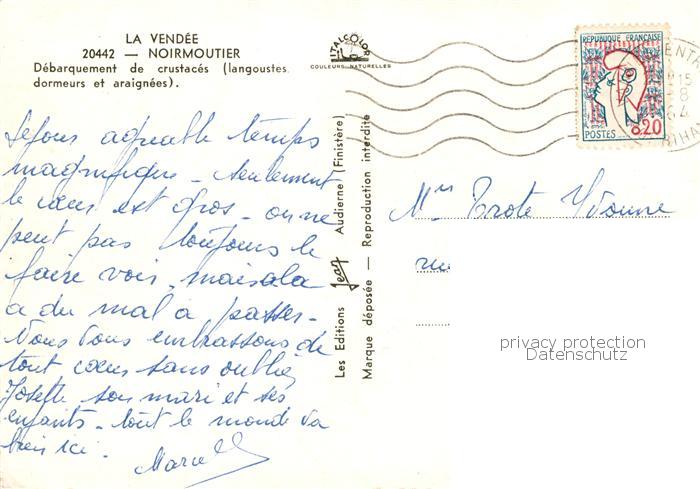 LA VENDÉE
20442 — NOIRMOUTIER
Débarquement de crustacés (langoustes,
dormeurs et araignées).
ITALCOLOR
COULEURS NATURELLES
REPUBLIQUE FRANÇAISE
POSTES 0,20
15
8
Séjour agréable temps
magnifique - seulement
le cœur est gros - on ne
peut pas toujours le
faire voir - mais cela
a du mal à passer -
Nous vous embrassons de
tout cœur sans oublier
Josette son mari et ses
enfants - tout le monde va
bien ici.
Les Editions Jean Audierne (Finistère)
Marque déposée — Reproduction interdite
Mme Trote Yvonne
rue
privacy protection
Datenschutz